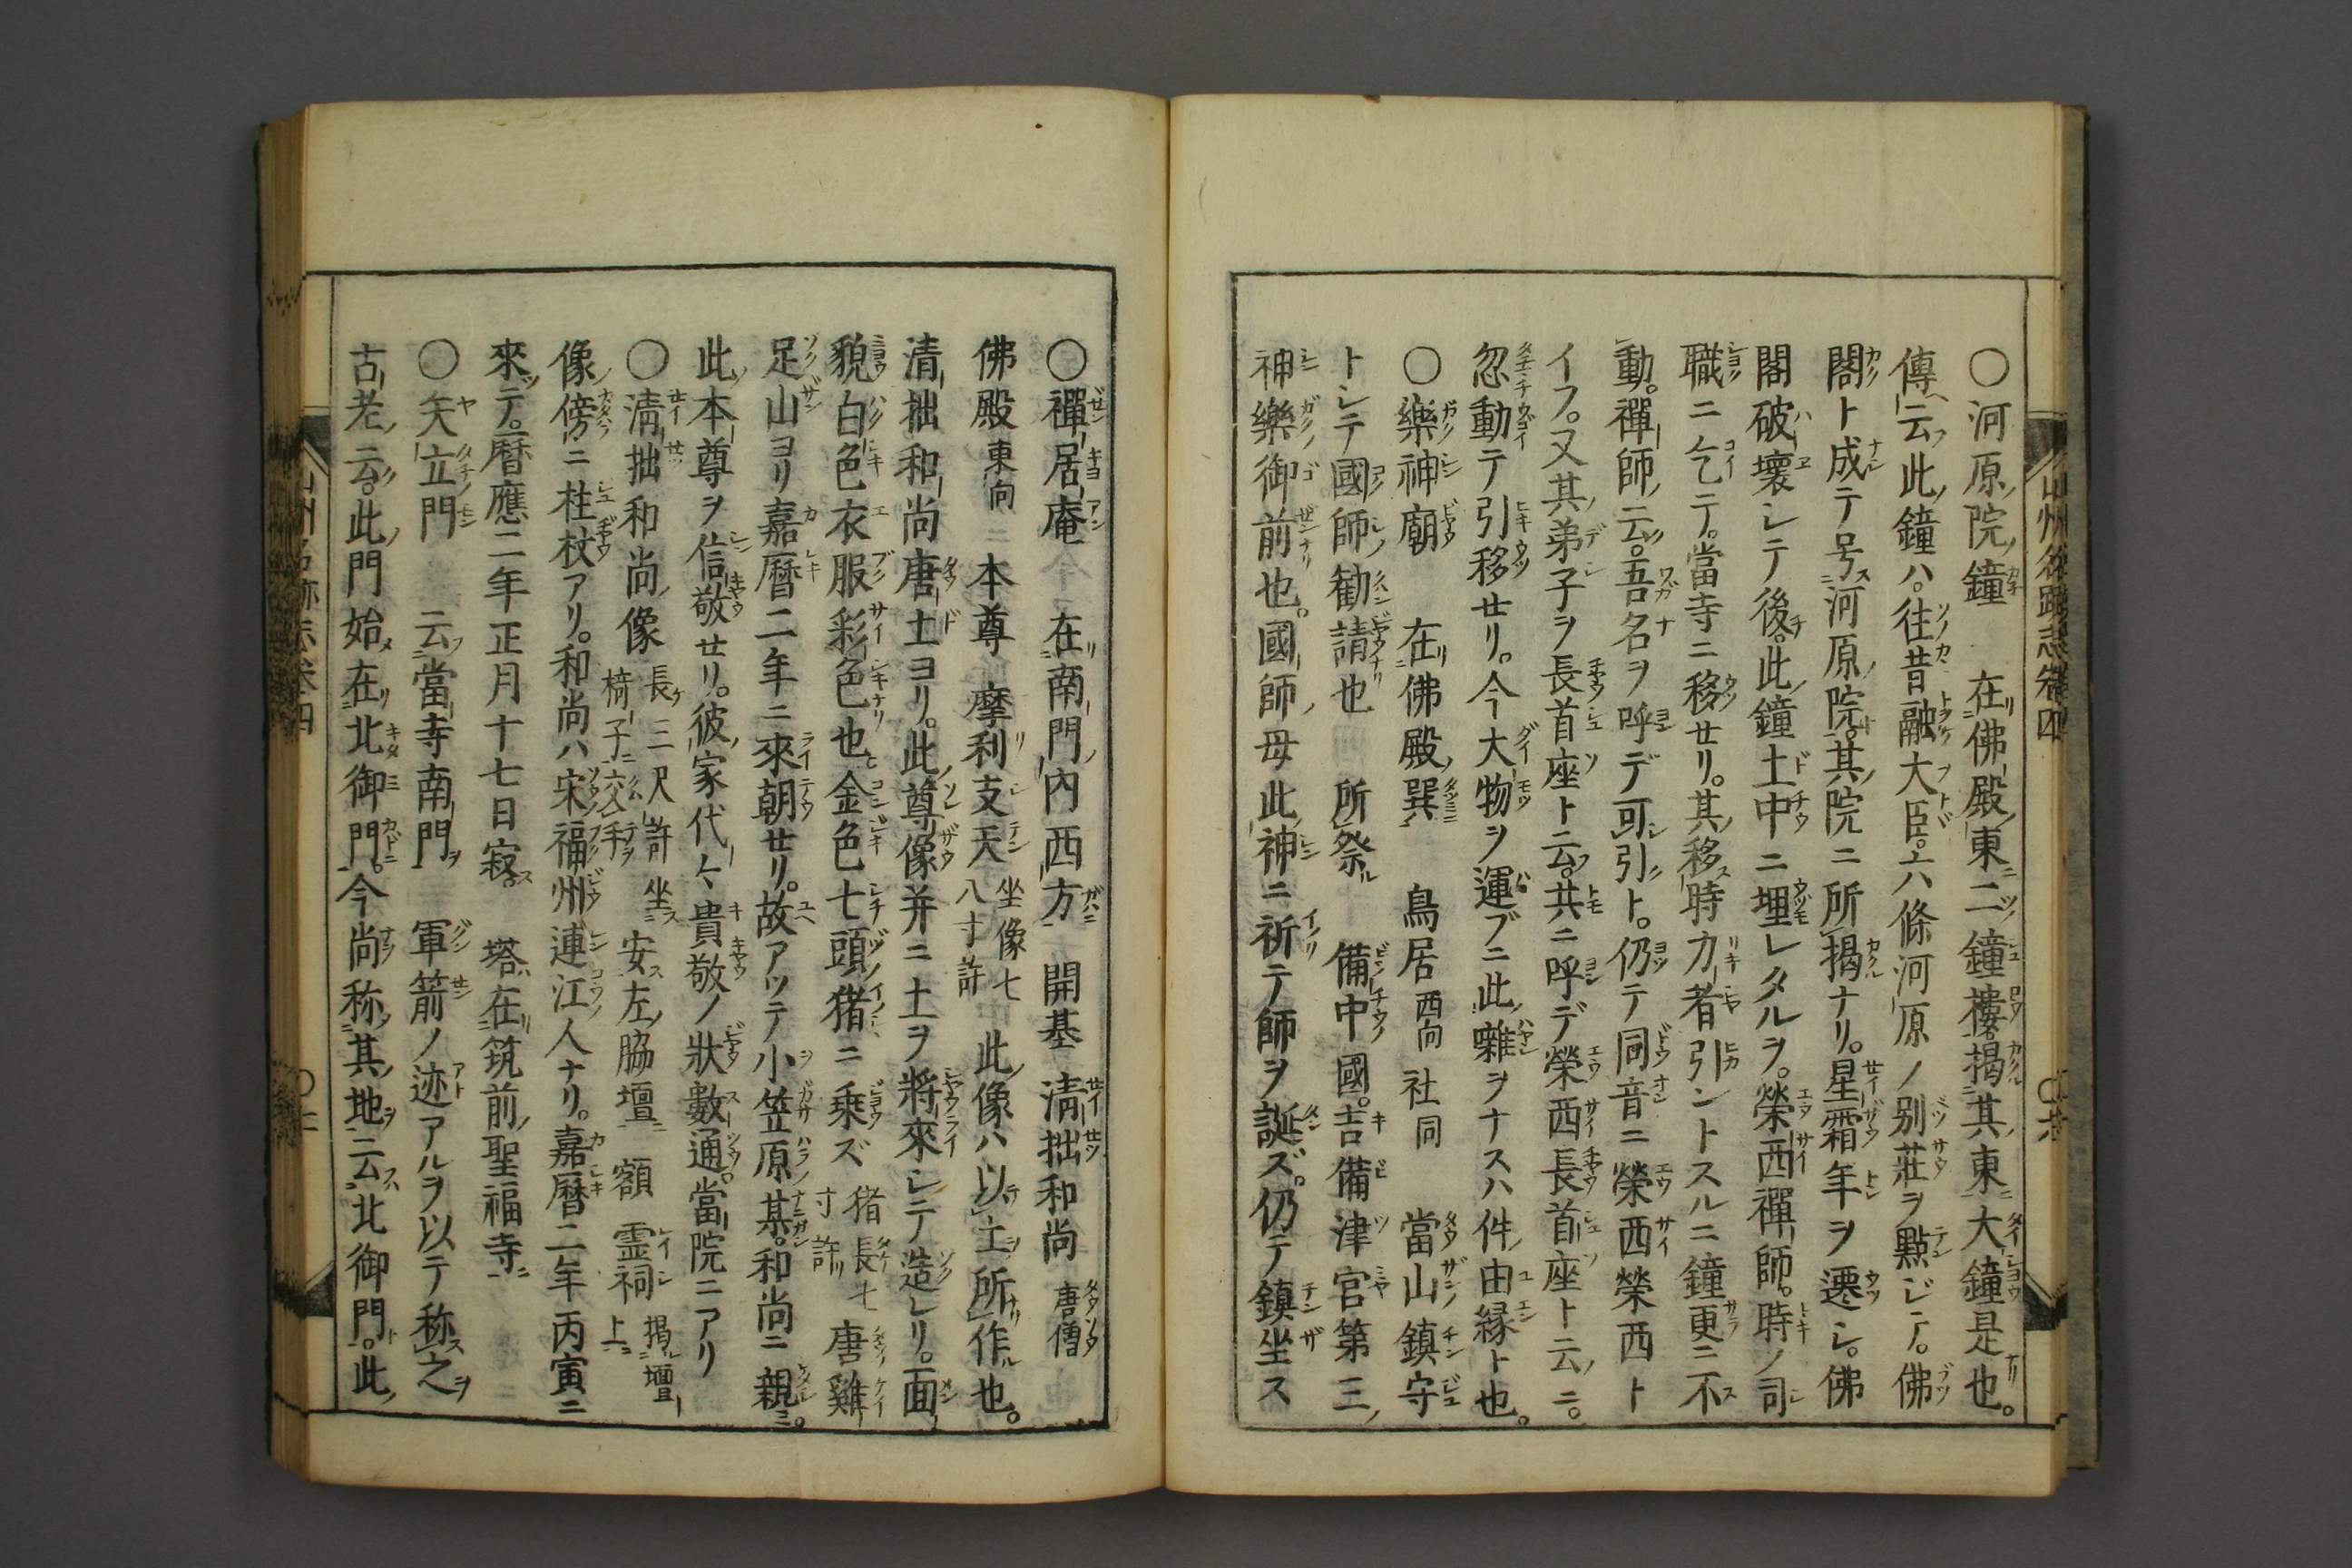 山州名跡志巻四
〇河原院鐘 在佛殿東二鐘樓揭其東大鐘是也。
傳云此鐘ハ。往昔融大臣。六條河原ノ別莊ヲ點ジテ。佛
閣ト成テ号河原院。其院ニ所揭ナリ。星霜年ヲ遷シ。佛
閣破壊シテ後。此鐘土中ニ埋レタルヲ。榮西禪師。時ノ司
職ニ乞テ。當寺ニ移セリ。其移時力者引ントスルニ鐘更ニ不
動。禪師云。吾名ヲ呼デ可引ト。仍テ同音ニ榮西榮西ト
イフ。又其弟子ヲ長首座ト云。共ニ呼デ榮西長首座ト云ニ。
忽動テ引移セリ。今大物ヲ運ブニ此囃ヲナスハ件由縁ト也。
〇樂神廟 在佛殿巽 鳥居西向 社同 當山鎮守
トシテ國師勸請也 所祭 備中國。吉備津宮第三
神樂御前也。國師母此神ニ祈テ師ヲ誕ズ。仍テ鎮坐ス
〇禪居庵 在南門內西方 開基 淸拙和尚 唐僧
佛殿 東向 本尊 摩利支天 坐像七八寸許 此像ハ以土所作也。
清拙和尚唐土ヨリ。此尊像并ニ土ヲ將來シテ造レリ。面
貌白色衣服彩色也金色七頭猪ニ乗ズ 猪長七寸許 唐雞
足山ヨリ嘉暦二年ニ來朝セリ。故アツテ小笠原某。和尚ニ親。
此本尊ヲ信敬セリ。彼家代々貴敬ノ狀數通。當院ニアリ
〇淸拙和尚像 長三尺許坐椅子交手。 安左脇壇 額 霊祠 揭壇上
像傍ニ柱杖アリ。和尚ハ宋福州連江人ナリ。嘉暦二年丙寅ニ
來テ。暦應二年正月十七日寂。 塔在筑前聖福寺
〇矢立門 云當寺南門 軍箭ノ迹アルヲ以テ称之
古老云。此門始在北御門。今尚称其地云北御門。此